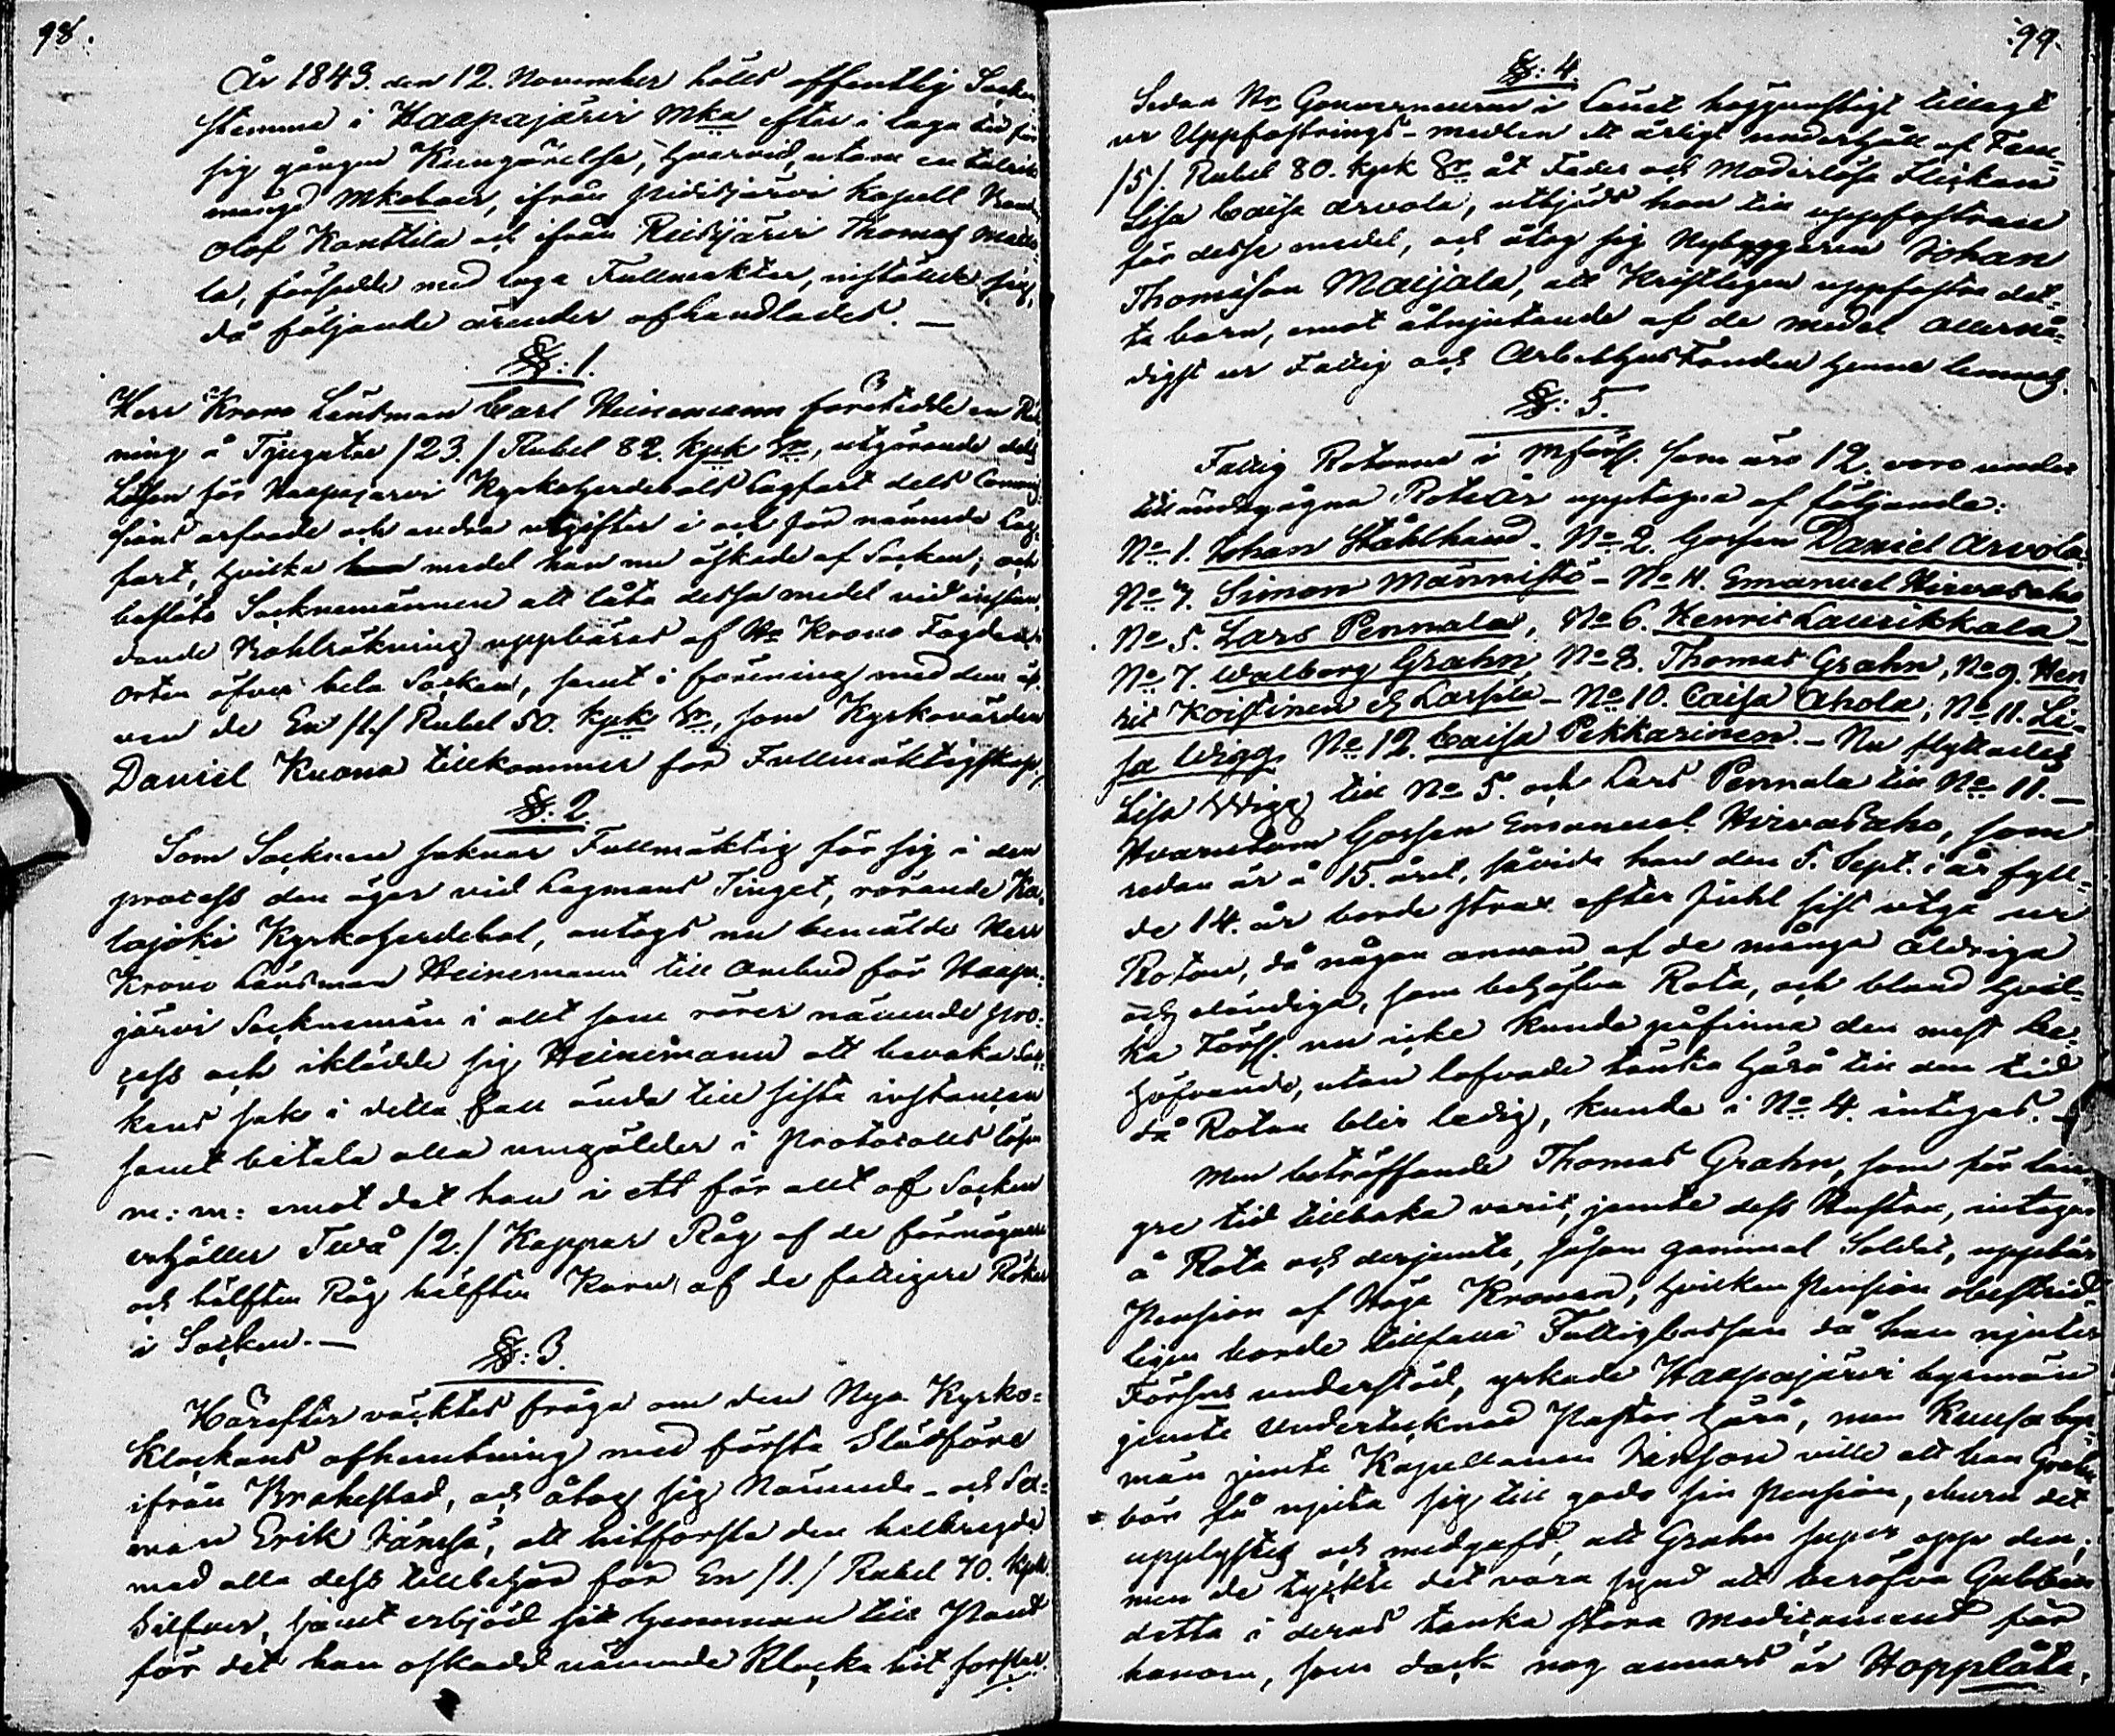 98.
År 1843. den 12. November hölls offentlig Socken
stemma i Haapajärvi Mka efter i laga tid för
sig gången Kungörelse, hvarvid, utom en talrik
mängd Mkoboer, ifrån Pidisjärvi Kapell
Olof Konttila och ifrån Reisjärvi Thomas
la, försedde med laga Fullmakter, inställde sig,
då följande ärender afhandlades. —
§: 1.
Herr Krono Länsman Carl Heinemann företedde en Räk
ning å Tjugutre /23./ Rubel 82. kpk Sr, utgörande dels
Lösen för Haapajärvi Kyrkoherdebols Lagfart dels Commis
sions arfvode och andra utgifter i och för nämnde Lag
fart, hvilka medel han nu äskade af Socken; och
beslöto Socknemännen att låta dessa medel vid instun
dande Kohlräkning uppbäras af Hr Krono Fogden i
Orten öfver hela Socken, samt i förening med dem äf
ven de En /1./ Rubel 50. kpk Sr, som Kyrkovärden
Daniel Kuona tillkommer för Fullmäktigskap.
§. 2.
Som Socknen saknar Fullmäktig för sig i den
process den äger vid Lagmans Tinget, rörande Ka
lajoki Kyrkoherdebol, antogs nu bemälde Herr
Krono Länsman Heinemann till Ombud för Haapa
järvi Socknemän i allt som rörer nämnde pro=
cess och iklädde sig Heinemann att bevaka Soc
kens sak i detta fall ända till sista instansen
samt betala alla umgälder i Protocolls lösen
m: m: emot det han i ett för allt af Socken
erhåller Twå /2./ Kappar Råg af de förmögnare
och hälften Råg hälften Korn af de fattigare Röken
i Socken. —
§: 3.
Härefter väcktes fråga om den Nya Kyrko=
klockans afhemtning med första Slädföre
ifrån Brahestad, och åtog sig Nämnde- och Sex=
man Erik Jämsä, att hitforsla den helbregda
med alla dess tillbehör för En /1./ Rubel 70. kpk
Silfver, samt erbjöd sitt Hemman till Pant
för det han oskadd nämnde Klocka hit forslar.
99.
§: 4.
Sedan Hr Gouverneuren i Länet höggunstigt tillagt
ur Uppfostrings-medlen ett årligt underhåll af Fem
/5/. Rubel 80. kpk Sr åt Fader och Moderlösa Flickan
Lisa Caisa Arvola, utbjöds hon till uppfostran
för desse medel, och åtog sig Nybyggaren Johan
Thomasson Maijala, att Kristligen uppfostra det=
ta barn, emot åtnjutande af de medel allernå=
digst ur Fattig och Arbetshus Fonden henne lemnas.
§: 5.
Fattig Rotarne i Mförs. som äro 12. voro under
tilländagågna Roteår upptagna af följande:
No 1. Johan Stålhand. No 2. Gossen Daniel Arvola.
No 3. Simon Männistö - No 4. Emanuel Hirvasaho
No 5. Lars Pennala, No 6. Henric Laurikkala -
No 7. Walborg Grahn, No 8. Thomas Grahn, No 9. Hen
ric Koistinen & Lassila - No 10. Caisa Ahola; No 11. Li=
sa Wigg. No 12. Caisa Pekkarinen. - Nu flyttades
Lisa Wigg till No 5. och Lars Pennala till No 11. —
Hvarutom Gossen Emanuel Hirvasaho, som
redan är å 15. året, såvida han den 5. Sept. i år fyll=
de 14. år borde strax efter Juhl sist utgå ur
Rotan, då någon annan af de många åldriga
och eländiga, som behöfva Rota, och bland hvil=
ka Förss. nu icke kunde påfinna den mest be=
höfvande, utan lofvade tänka härå till den tid
då Rotan blir ledig, kunde i No 4. intagas. —
Men beträffande Thomas Grahn, som för län
gre tid tillbaka varit, jemte dess Hustru, intagen
å Rota och derjemte, såsom gammal Soldat, uppbär
Pension af Höga Kronan; hvilken Pension obestrid
ligen borde tillfalla Fattigkassan då han njuter
Förssns understöd, yrkade Haapajärvi bysmän
jemte Undertecknad Pastor härå, men Kuusa bys
män jemte Kapellanen Jenson ville att han Grahn
bör få njuta sig till godo sin Pension, ehuru det
upplystes och medgafs, att Grahn super opp den;
men de tyckte det vara synd att beröfva Gubben
detta i deras tanka stora Medicament för
honom, som dock nog annars är Hopplåta,